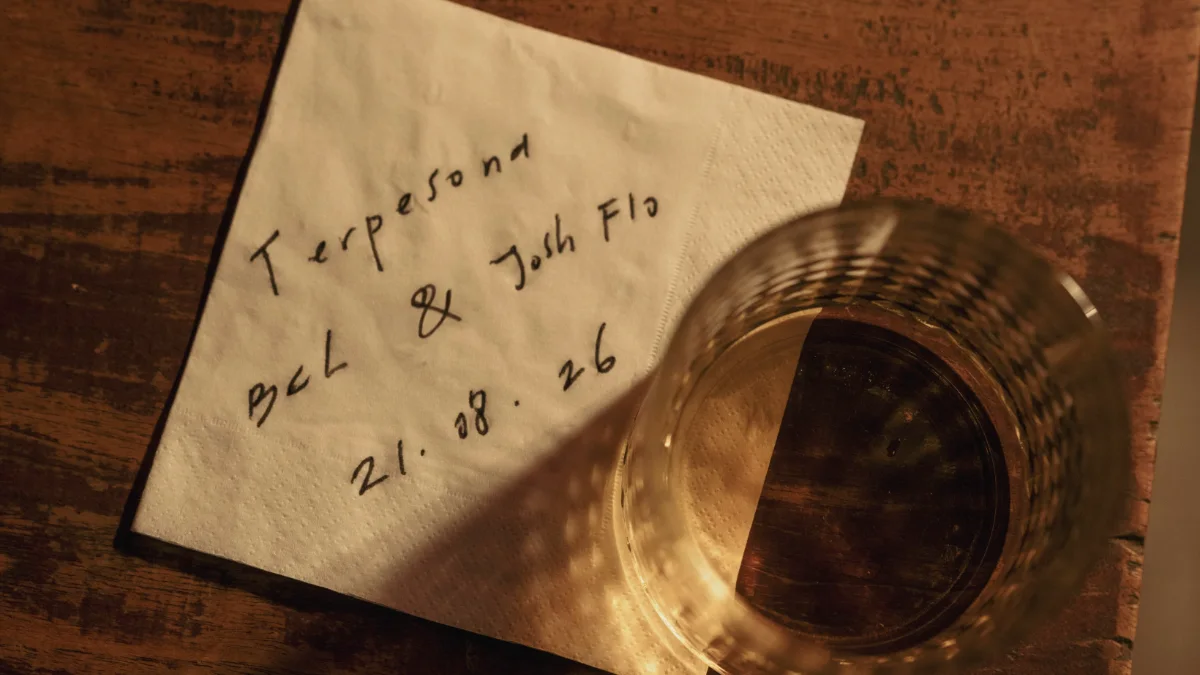 Terpesona
BCL & Josh Flo
21.08.26